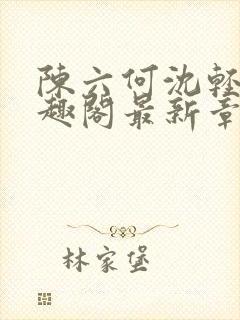 陳六何沈輕
趣閣最新章
林家堡